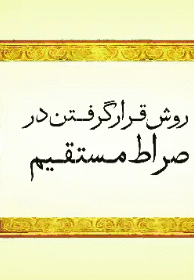 روش قرار گرفتن در
صراط مستقیم